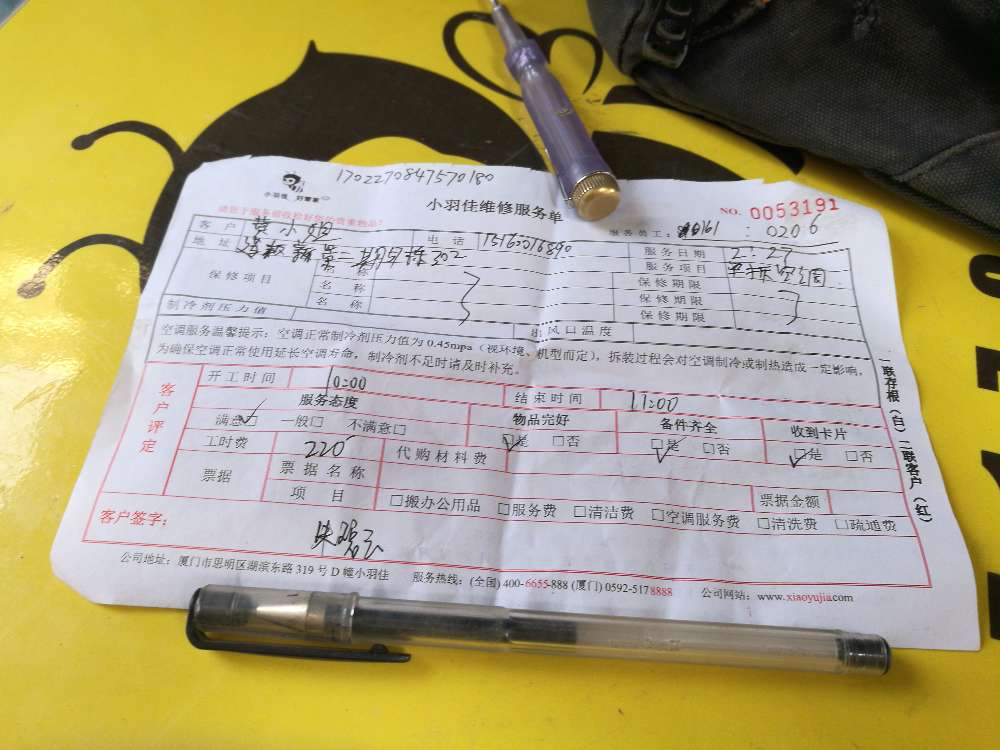 1702270847570180
小羽佳 好管家
小羽佳维修服务单
NO. 0053191
请您于服务前收拾好您的贵重物品!
服务员工: 0161 : 0206
客户 黄小姐 电话 15160016890 服务日期 2:27
地址 第二期 302 服务项目 空调
保修项目 名称 保修期限
名称 保修期限
名称 保修期限
制冷剂压力值 出风口温度
空调服务温馨提示: 空调正常制冷剂压力值为 0.45mpa (视环境、机型而定), 拆装过程会对空调制冷或制热造成一定影响,
为确保空调正常使用延长空调寿命, 制冷剂不足时请及时补充。
客户评定
开工时间 10:00 结束时间 11:00
服务态度 物品完好 备件齐全 收到卡片
满意☑ 一般□ 不满意□ ☑是 □否 ☑是 □否 ☑是 □否
工时费 220 代购材料费
票据 票据名称 票据金额
项目 □搬办公用品 □服务费 □清洁费 □空调服务费 □清洗费 □疏通费
客户签字:
公司地址: 厦门市思明区湖滨东路 319 号 D 幢小羽佳 服务热线: (全国) 400-6655-888 (厦门) 0592-5178888 公司网站: www.xiaoyujia.com
一联存根(白) 二联客户(红)